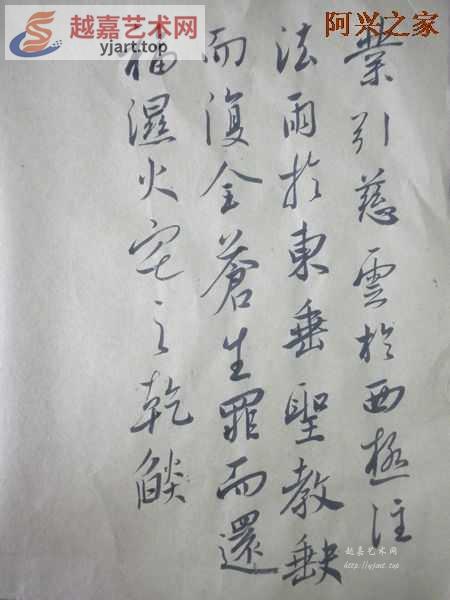 越嘉艺术网
yjart.top
阿兴之家
業引慈雲於西極注
法雨於東垂聖教缺
而復全蒼生罪而還
福濕火宅之乾燄
越嘉艺术网
http://yjart.top